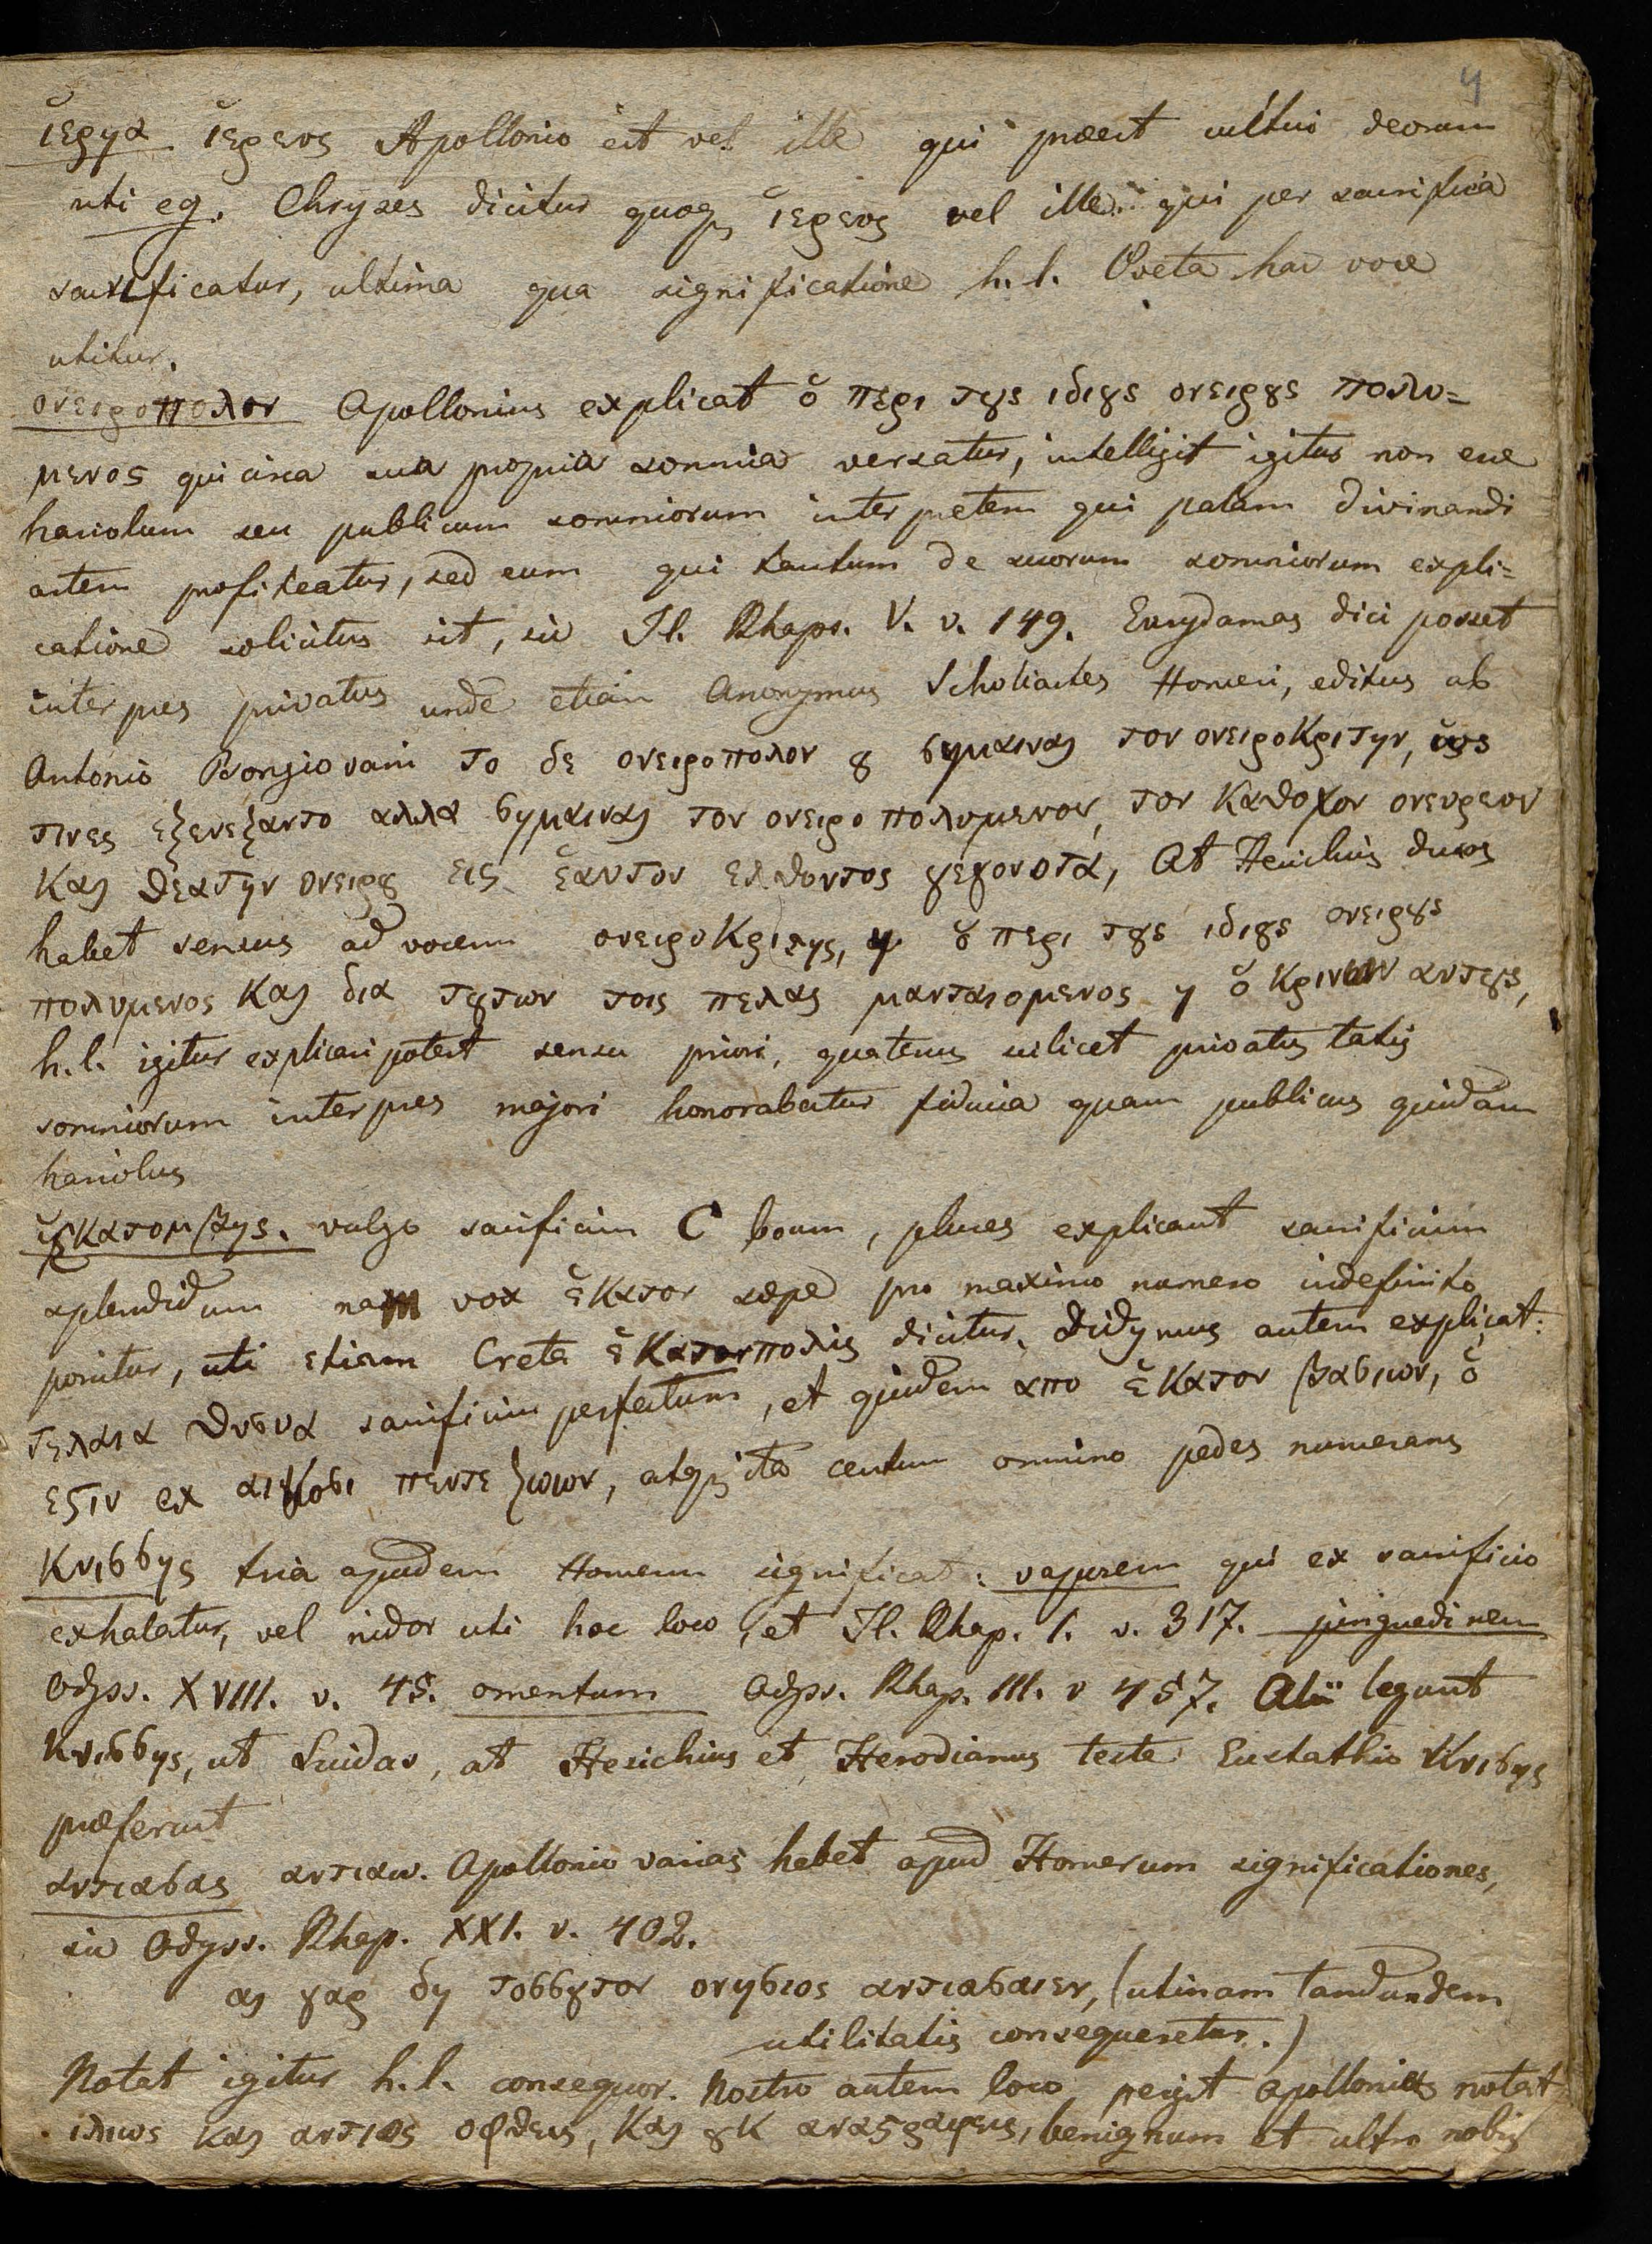 4
ἱερηα ἱερευς Apollonio est vel ille qui praeest cultui deorum
uti eg. Chryses dicitur quoq ἱερευς vel ille qui per sacrificia
sacrificatur, ultima qua significatione h. l. Poeta hac voce
utitur.
ονειροπολον Apollonius explicat ὁ περι τȣς ιδιȣς ονειρȣς πολυ=
μενος qui circa sua propria somnia versatur, intelligit igitur non esse
hariolum seu publicum somniorum interpretem qui palam divinandi
artem profiteatur, sed eum qui tantum de suorum somniorum expli=
catione solicitus sit, sic Il. Rhaps. V. v. 149. Eurydamas dici posset
interpres privatus unde etiam Anonymus Scholiastes Homeri, editus ab
Antonio Bongiovani το δε ονειροπολον ȣ σημαιναι τον ονειροκριτην, ὡς
τινες εξενεξαντο αλλα σημαιναι τον ονειροπολυμενον, τον καθοχον ονευρευν
και θεατην ονειρȣ εις ἑαυτον ελθοντος γεγονοτα, At Hesichius duos
habet sensus ad vocem ονειροκριτης, η ὁ περι τȣς ιδιȣς ονειρȣς
πολυμενος και δια τȣτων τοις πελας μανταιομενος η ὁ κρινων αυτȣς,
h. l. igitur explicari potest sensu priori, quatenus scilicet privatus talis
somniorum interpres majori honorabatur fiducia quam publicus quidam
hariolus
ἑκατομβης. vulgo sacrificium C boum, plures explicant sacrificium
splendidum nam vox ἑκατον saepe pro maximo numero indefinito
ponitur, uti etiam Creta ἑκατονπολις dicitur. Didymus autem explicat:
τελαια θυσυα sacrificium perfectum, et quidem απο ἑκατον βασιων, ὁ
εϛιν ex αικοσι πεντε ζωων, atq ita centum omnino pedes numerans
Κνισσης tria apudem Homerum significat: vaporem qui ex sacrificio
exhalatur, vel nidor uti hoc loco, et Il. Rhap. I. v. 317. pinguedinem
Odyss. XVIII. v. 45. omentum Odyss. Rhap. III. v 457. Alii legunt
κνισσης, ut Suidas, at Hesichius et Herodianus teste Eustathio Κνισης
praeferunt
αντιασας αντιαω. Apollonio varias habet apud Homerum significationes,
sic Odyss. Rhap. XXI. v. 402.
αι γαρ δη τοσσȣτον ονησιος αντιασαιεν, (utinam tandundem
utilitatis consequeretur.)
Notat igitur h. l. consequor. Nostro autem loco, pergit Apollonius notat
ιλεως και αντιος οφθεις, και ȣκ αναϛραφεις, benignum et ultro nobis